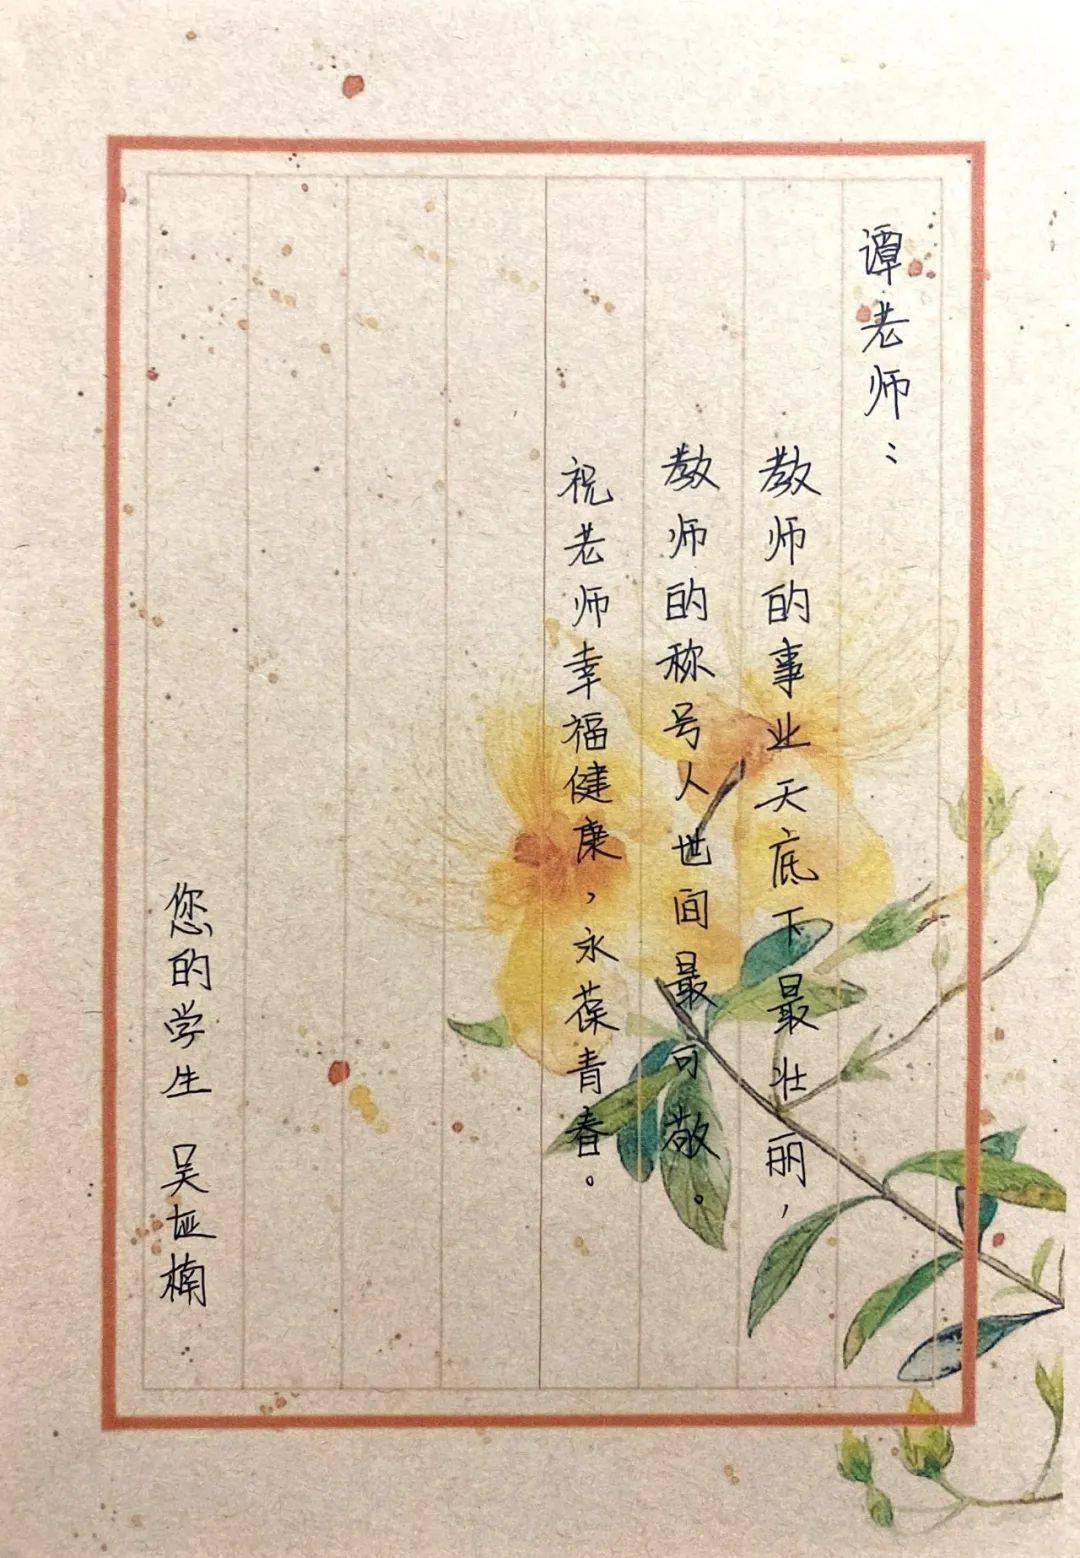 谭老师：
教师的事业天底下最壮丽，
教师的称号人世间最可敬。
祝老师幸福健康，永葆青春。
您的学生 吴垭楠